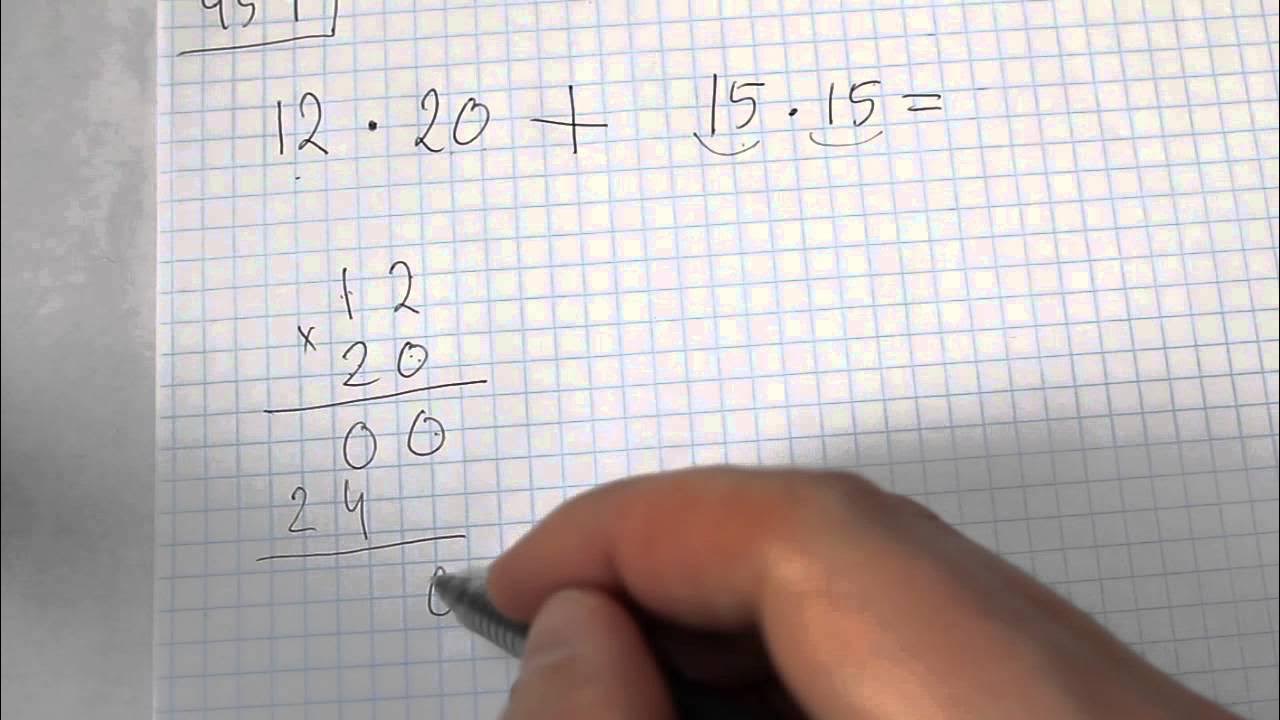 12 · 20 + 15 · 15 =
12
× 20
00
24
0